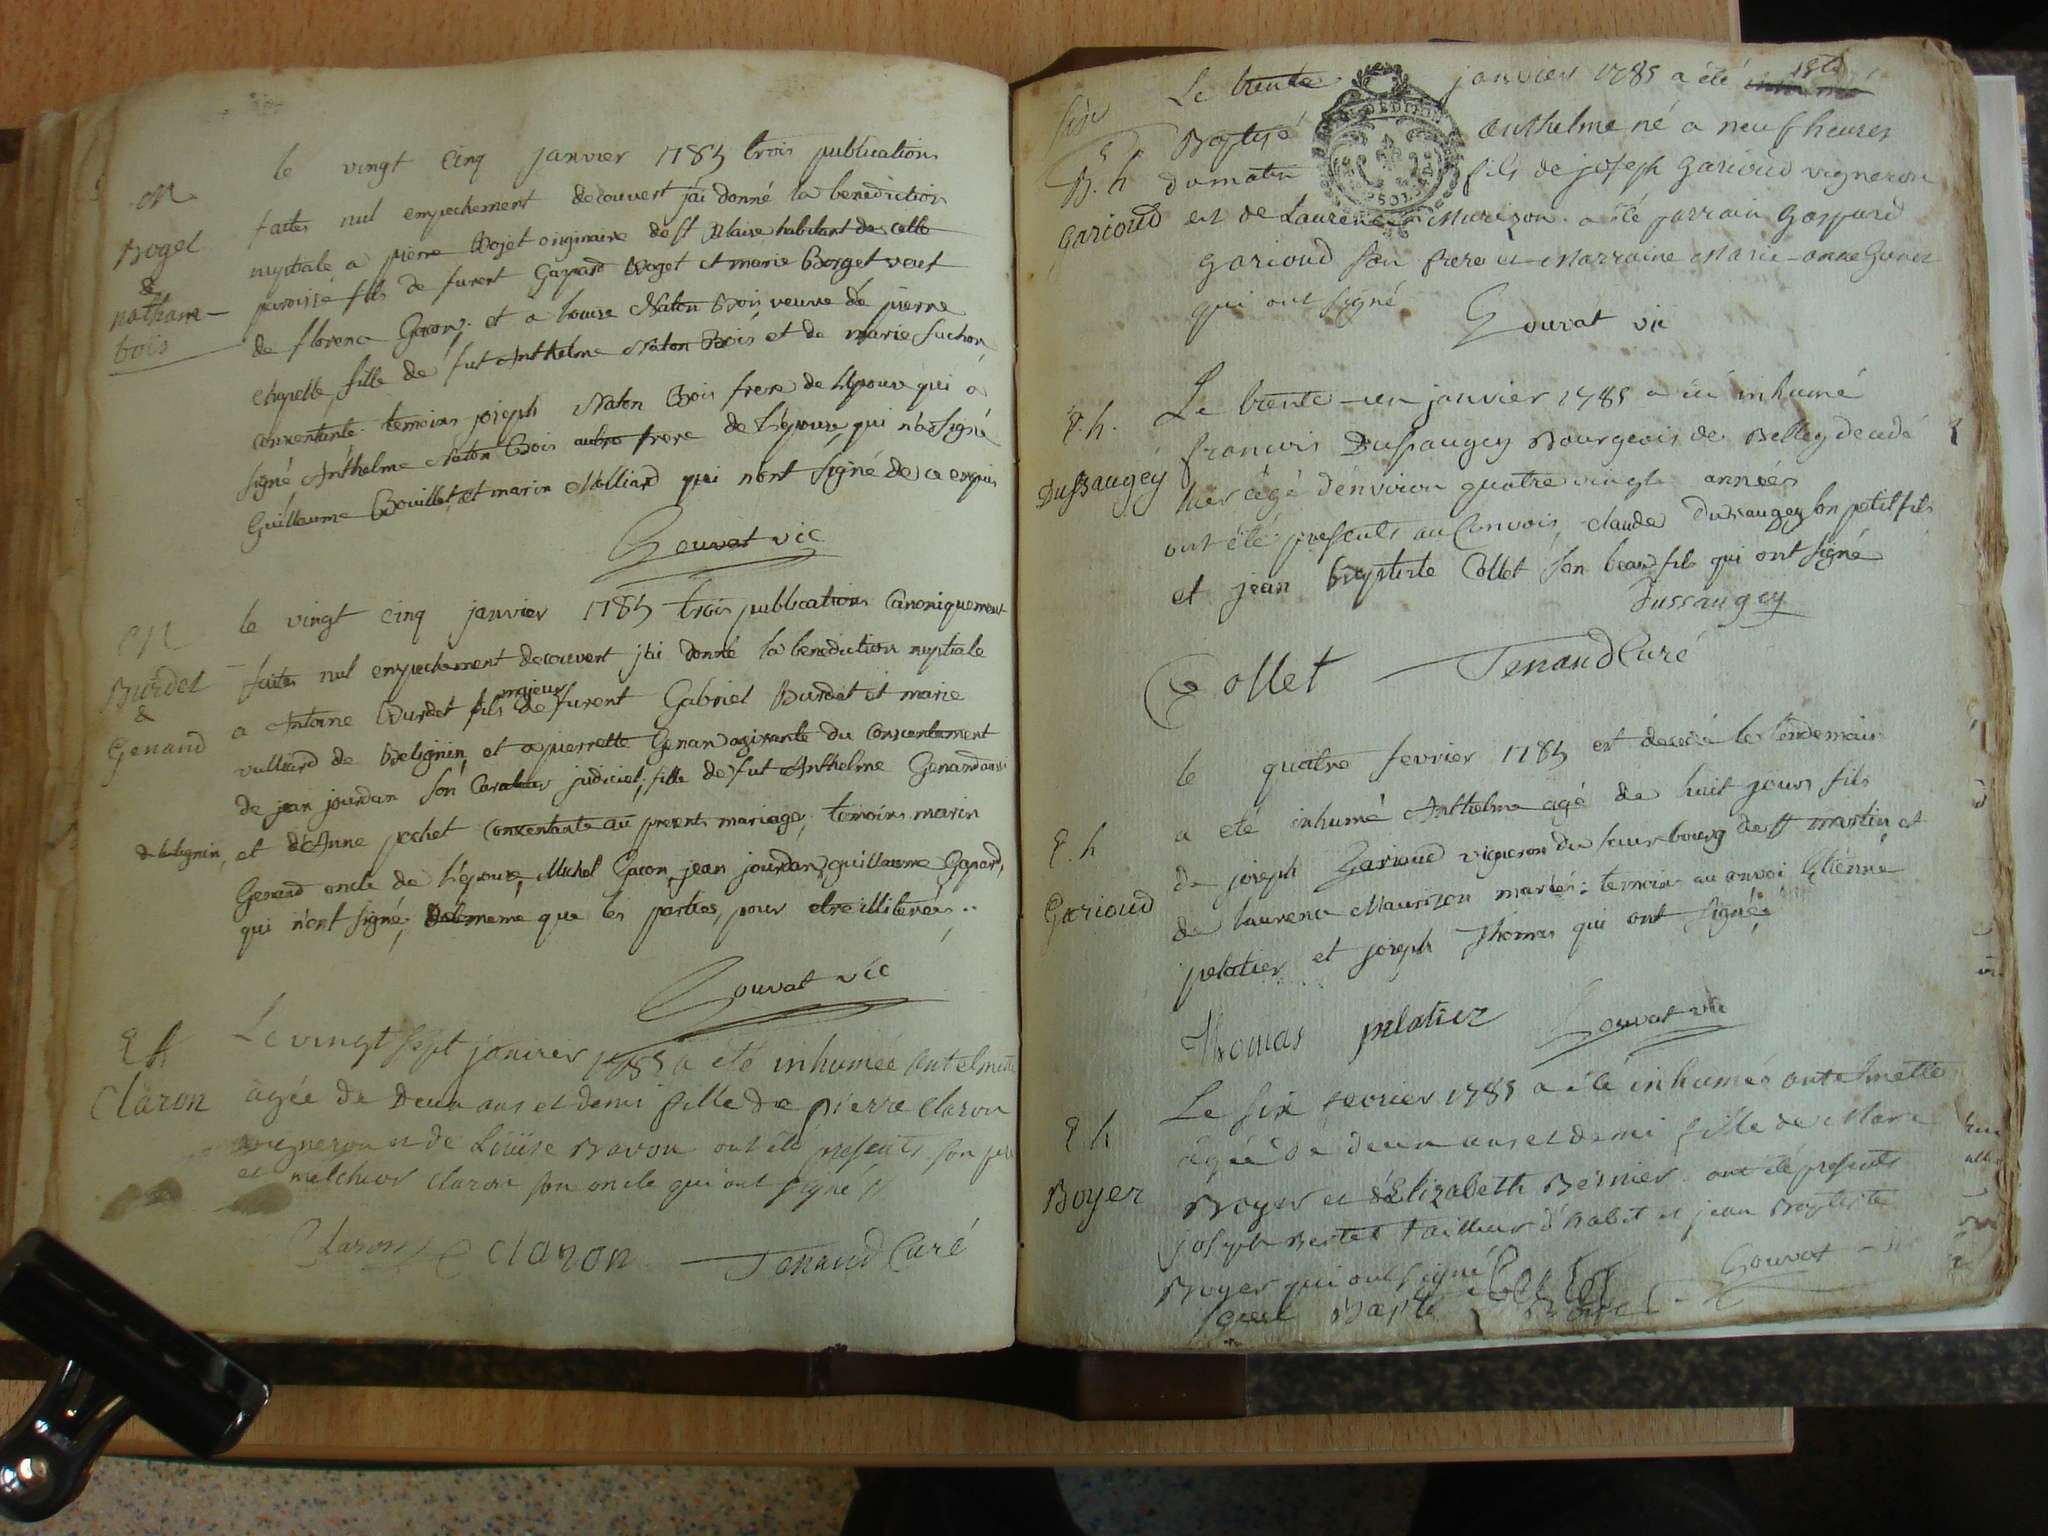 M
Boget
&
natham-
bois
le vingt cinq janvier 1785 trois publications
faites nul empechement decouvert j'ai donné la benediction
nuptiale a pierre Bojet originaire de st Blaise habitant de cette
paroisse fils de furent Gaspard Boget et marie Borget veuf
de florence Gacon, et a louise Naton Bois, veuve de pierre
chapelle, fille de fut Anthelme Naton Bois et de marie suchon,
consentante. temoins joseph Naton Bois frere de l'épouse qui a
signé Anthelme Naton Bois autre frere de l'épouse, qui n'a signé
Guillaume Bouillet, et marin Molliard qui n'ont signé de ce enquis
Gouvat vic
M
Burdet
&
Genand
le vingt cinq janvier 1785 trois publications Canoniquement
faites nul empechement decouvert j'ai donné la benediction nuptiale
a Antoine Burdet fils majeur de furent Gabriel Burdet et marie
vulliard de Belignin, et a pierrette Genan agissante du consentement
de jean jourdan son Curateur judiciel; fille de fut Anthelme Genand aussi
de belignin, et d'Anne pochet consentante au present mariage; temoins marin
Genand oncle de l'épouse, Michel Gacon, jean jourdan, guillaume Genand,
qui n'ont signé; de même que les parties, pour etre illiterés..
Gouvat vic
E h
Claron
Le vingt sept janvier 1785 a été inhumée Antelmette
agée de Deux ans et demi fille de pierre Claron
vigneron et de Louise Bavon ont été presents son pere
et melchior Claron son oncle qui ont signé
Claron Claron Tenand Curé
B. h
Garioud
Le trente janvier 1785 a été
Baptisé Anthelme né a neuf heures
du matin fils de joseph Garioud vigneron
et de Laurence Murizon. a été parrain Gaspard
Garioud son frere et Marraine Marie-anne
qui ont signé
Gouvat vic
E. h.
Dussaugey
Le trente-un janvier 1785 a été inhumé
francois Dussaugey Bourgeois de Belley decedé
hier agé d'environ quatre vingt années
ont été presents au Convois, claude Dussaugey son petit fils
et jean baptiste Collet son beau fils qui ont signé
Dussaugey
Collet Tenand Curé
E. h
Garioud
le quatre fevrier 1785 est decedé le lendemain
a été inhumé Anthelme agé de huit jours fils
de joseph Garioud vigneron du fauxbourg de st martin, et
de laurence Maurizon mariés: temoins au convoi Etienne
pelatier et joseph Thomas qui ont signé.
Thomas pelatier Gouvat vic
E. h
Boyer
Le six fevrier 1785 a été inhumée antelmette
agée de deux ans et demi fille de Marc
Boyer et d'Elizabeth Bernier. ont été presents
joseph Bertet tailleur d'habit et jean Baptiste
Boyer qui ont signé
Gouvat